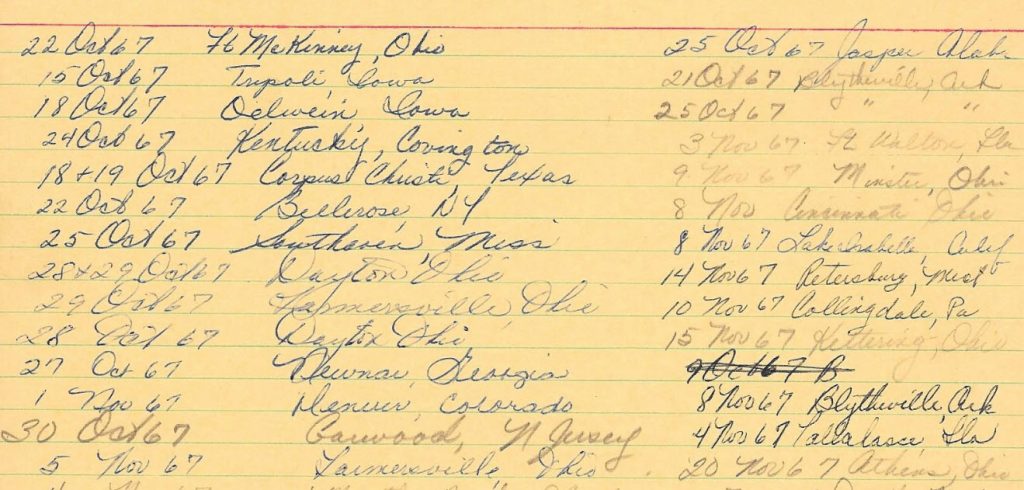 22 Oct 67 Ft McKinney, Ohio
15 Oct 67 Tripoli, Iowa
18 Oct 67 Oelwein Iowa
24 Oct 67 Kentucky, Covington
18+19 Oct 67 Corpus Christi, Texas
22 Oct 67 Bellerose, NY
25 Oct 67 Southaven, Miss
28+29 Oct 67 Dayton Ohio
29 Oct 67 Farmersville, Ohio
28 Oct 67 Dayton Ohio
27 Oct 67 Newnan, Georgia
1 Nov 67 Denver, Colorado
30 Oct 67 Garwood, N Jersey
5 Nov 67 Farmersville, Ohio
25 Oct 67 Jasper Alab
21 Oct 67 Blytheville, Ark
25 Oct 67 " "
3 Nov 67 Ft Walton, Fla
9 Nov 67 Minster, Ohio
8 Nov Cincinnati Ohio
8 Nov 67 Lake Isabella, Calif
14 Nov 67 Petersburg, Mich
10 Nov 67 Collingdale, Pa
15 Nov 67 Kettering, Ohio
9 Oct 67 B
8 Nov 67 Blytheville, Ark
4 Nov 67 Fla
20 Nov 67 Athens, Ohio